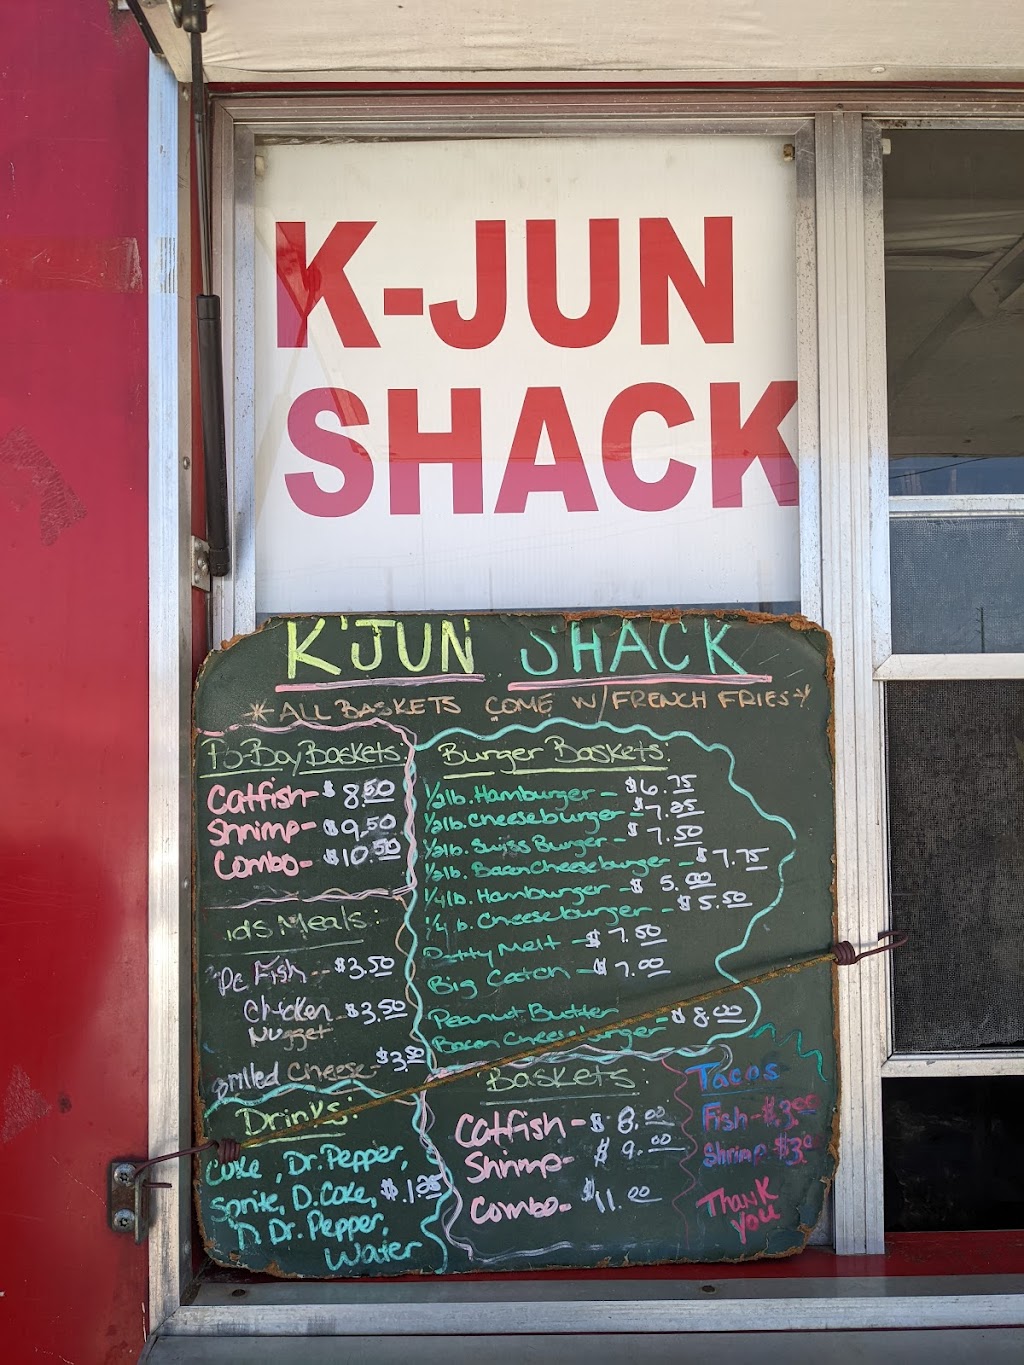 K-JUN
SHACK
K'JUN SHACK
*ALL BASKETS COME W/ FRENCH FRIES*
Po-Boy Baskets:
Catfish- $8.50
Shrimp- $9.50
Combo- $10.50
ids Meals:
Pc Fish -- $3.50
Chicken $3.50
Nugget
Grilled Cheese- $3.50
Drinks:
Coke, Dr. Pepper,
Sprite, D. Coke, $.1.25
D Dr. Pepper,
Water
Burger Baskets:
1/2lb. Hamburger - $6.75
1/2lb. Cheeseburger - $7.25
1/2lb. Swiss Burger - $7.50
1/2lb. Bacon Cheeseburger - $7.75
1/4lb. Hamburger - $5.00
1/4lb. Cheeseburger - $5.50
Patty Melt - $7.50
Big Caton - $7.00
Peanut Butter
Bacon Cheeseburger $8.00
Baskets:
Catfish - $8.00
Shrimp- $9.00
Combo- $11.00
Tacos
Fish-$3.00
Shrimp-$3.00
Thank
you